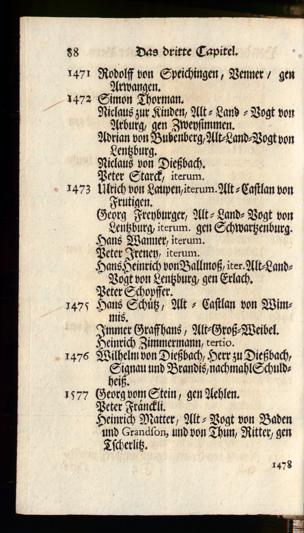 88 Das dritte Capitel.
1471 Rodolff von Speichingen, Venner / gen
Arwangen.
1472 Simon Thorman.
Niclaus zur Kinden, Alt-Land-Vogt von
Arburg, gen Zweysimmen.
Adrian von Bubenberg, Alt-Land-Vogt von
Lentzburg.
Niclaus von Dießbach.
Peter Starck, iterum.
1473 Ulrich von Laupen, iterum. Alt-Castlan von
Frutigen.
Georg Freyburger, Alt-Land-Vogt von
Lentzburg, iterum. gen Schwartzenburg.
Hans Wanner, iterum.
Peter Ireney, iterum.
Hans Heinrich von Ballmoß, iter. Alt-Land-
Vogt von Lentzburg, gen Erlach.
Peter Schopffer.
1475 Hans Schütz, Alt-Castlan von Wim-
mis.
Immer Graffhans, Alt-Groß-Weibel.
Heinrich Zimmermann, tertio.
1476 Wilhelm von Dießbach, Herr zu Dießbach,
Signau und Brandis, nachmahl Schuld-
heiß.
1577 Georg vom Stein, gen Aehlen.
Peter Fränckli.
Heinrich Matter, Alt-Vogt von Baden
und Grandson, und von Thun, Ritter, gen
Tscherlitz.
1478